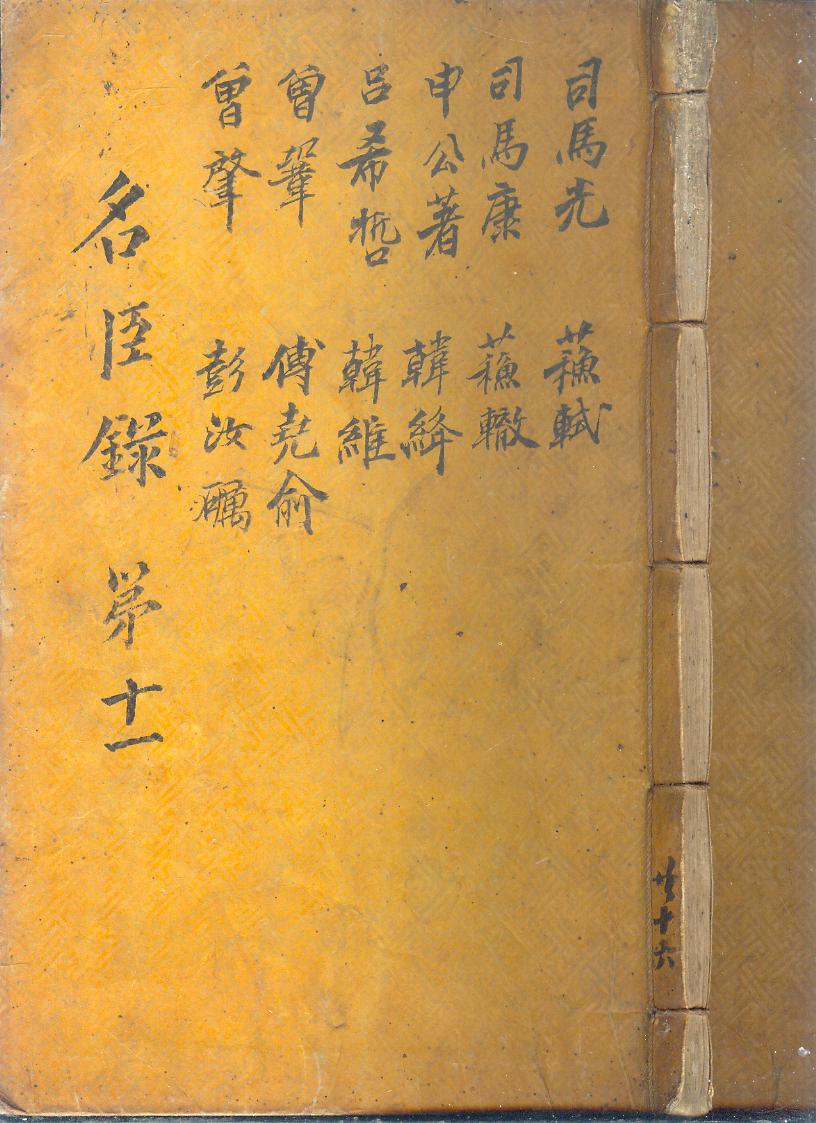 司馬光 蘓軾
司馬康 蘓轍
申公著 韓絳
呂希哲 韓維
曾鞏 傅堯俞
曾肇 彭汝礪
名臣錄 第十一
共十六